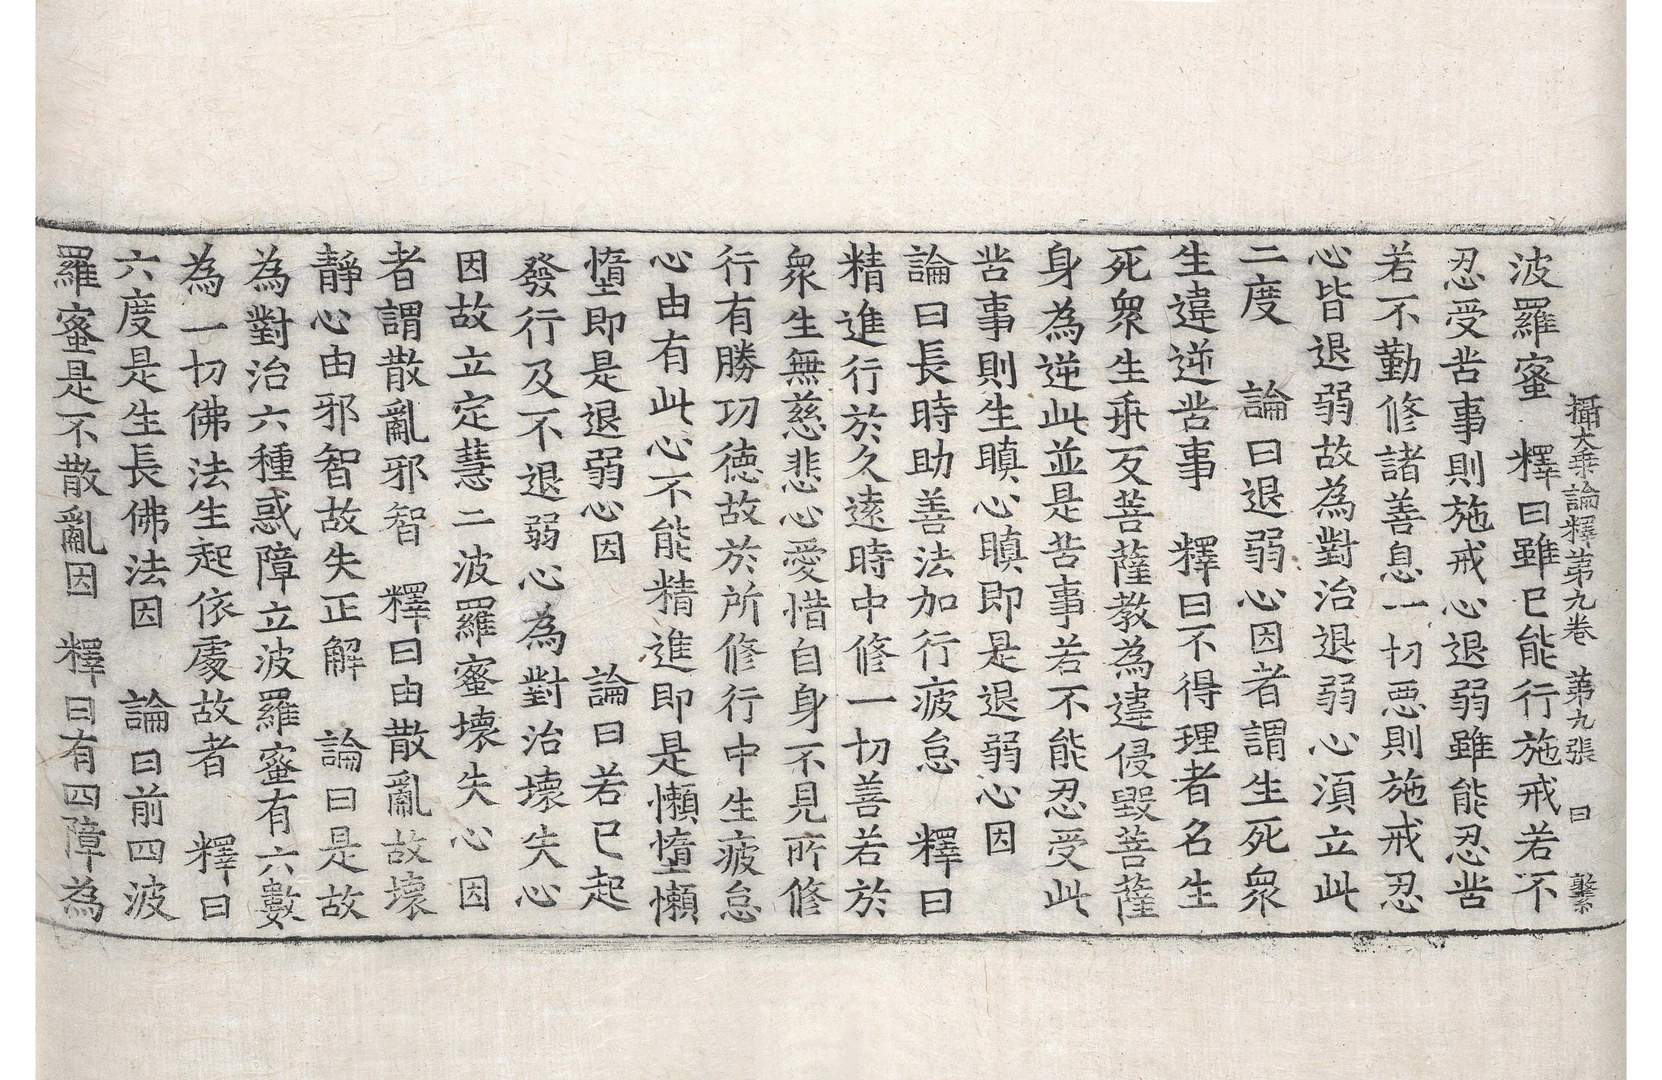 攝大乗論釋第九卷 第九張 曰 鑿
波羅蜜 釋曰雖已能行施戒若不
忍受苦事則施戒心退弱雖能忍苦
若不勤修諸善息一切惡則施戒忍
心皆退弱故為對治退弱心湏立此
二度 論曰退弱心因者謂生死衆
生違逆苦事 釋曰不得理者名生
死衆生乖反菩薩教為違侵毀菩薩
身為逆此並是苦事若不能忍受此
苦事則生瞋心瞋即是退弱心因
論曰長時助善法加行疲怠 釋曰
精進行於久遠時中修一切善若於
衆生無慈悲心愛惜自身不見所修
行有勝功德故於所修行中生疲怠
心由有此心不能精進即是懶墮懶
墮即是退弱心因 論曰若已起
發行及不退弱心為對治壞失心
因故立定慧二波羅蜜壞失心因
者謂散亂邪智 釋曰由散亂故壞
靜心由邪智故失正解 論曰是故
為對治六種惑障立波羅蜜有六數
為一切佛法生起依處故者 釋曰
六度是生長佛法因 論曰前四波
羅蜜是不散亂因 釋曰有四障為